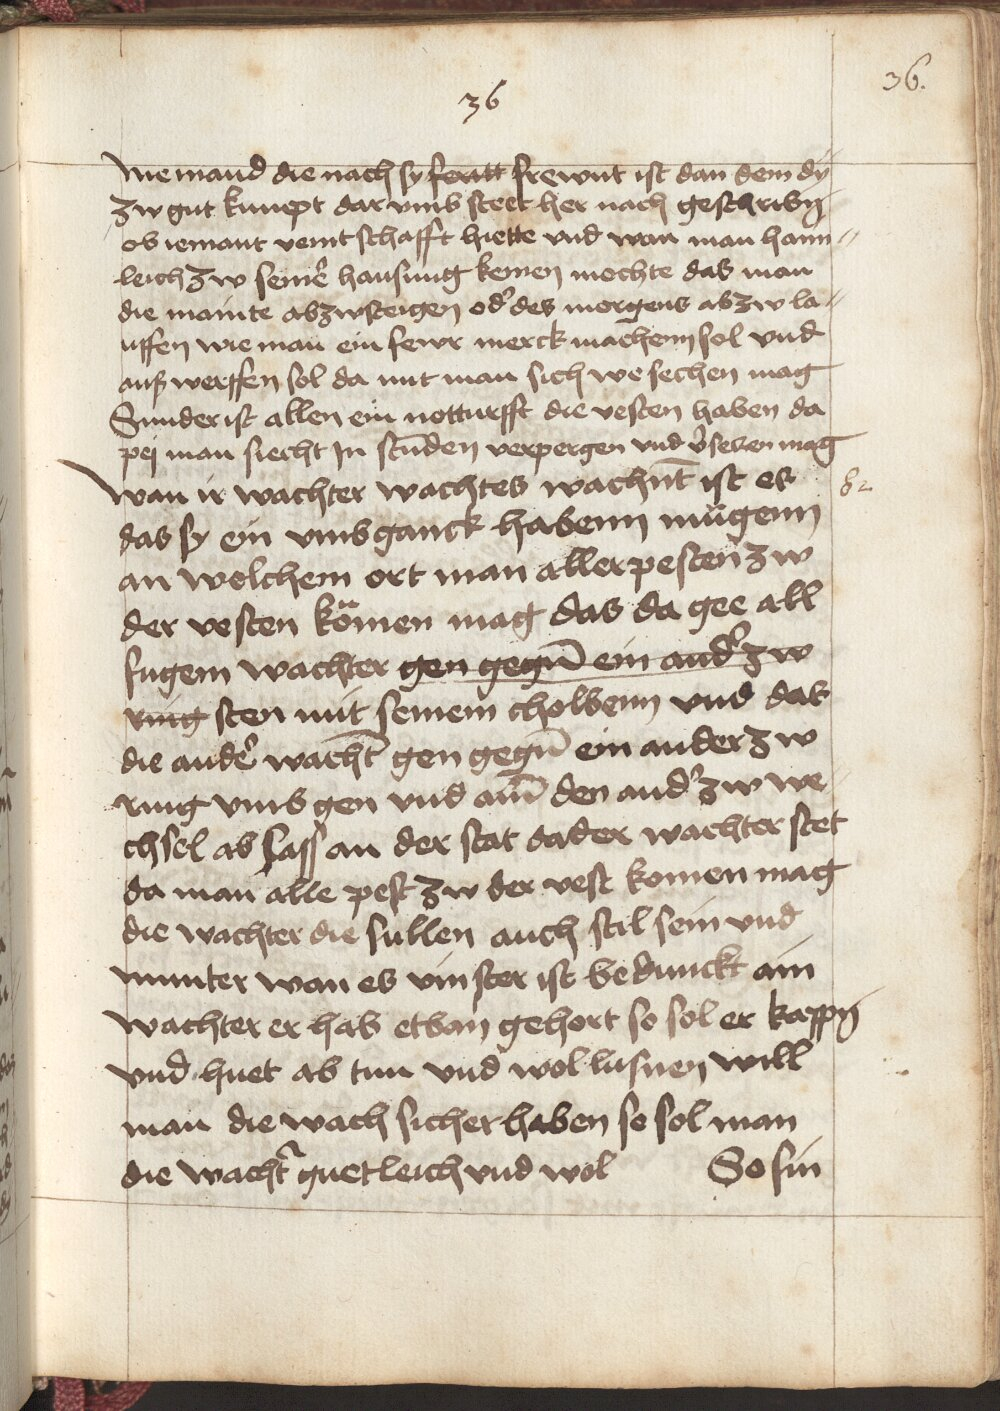 36
36.
Niemand die nach sy feratt frewnt ist dan dem dy
zw gut kumpt dar vmb steet her nach geschribn̄
ob iemant veintschafft hiette vnd wan man haim⸗
leich zw seiner̄ hausung kemen mochte das man
die mainte abzwsteigen od̓ des morgens ab zw la⸗
uffen wie man ein fewr merck machenn sol vnd
auß werffen sol da mit man sich we sechen mag
Sunder ist allen ein notturfft die vesten haben da
pej man siecht In stunden verpergen vnd v̓sehen mag
Wan ir wachter wachtes wachn̄t ist es
82
das sy ein vmbganck habenn mügenn
an welchem ort man aller pesten zw
der vesten kömen mag das da gee all
fugem wachter gen gegn̄ ein and̓ zw
ring sten mit seinem cholbenn vnd das
die ander̓ wacht̄ gen gegn̄ ein ander zw
ring vmb gen vnd ain̄ den and̓ zw we⸗
chsel ab lass an der stat da der wachter stet
da man alle pest zw der vest komen mag
die wachter die sullen auch stil sein vnd
munter wan es vinster ist bedunckt ain
wachter er hab etban gehort so sol er kappn̄
vnd huet ab tun vnd wol lusnen will
man die wach sicher haben so sol man
die wacht̓ guetleich vnd wol So sin